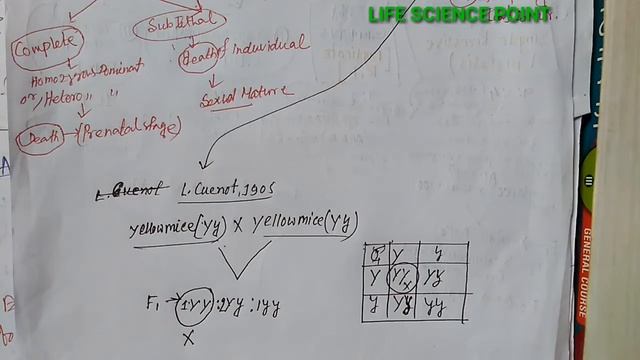 LIFE SCIENCE POINT
Complete
Sublethal
Death of individual
Homozygous Dominant
or, Hetero „ „
Sexual Mature
Death → (Prenatal stage)
L. Cuenot L. Cuenot, 1905
yellow mice (Yy) X Yellow mice (Yy)
F₁ → 1YY : 2Yy : 1yy
X
Y y
Y YY Yy
y Yy yy
GENERAL COURSE